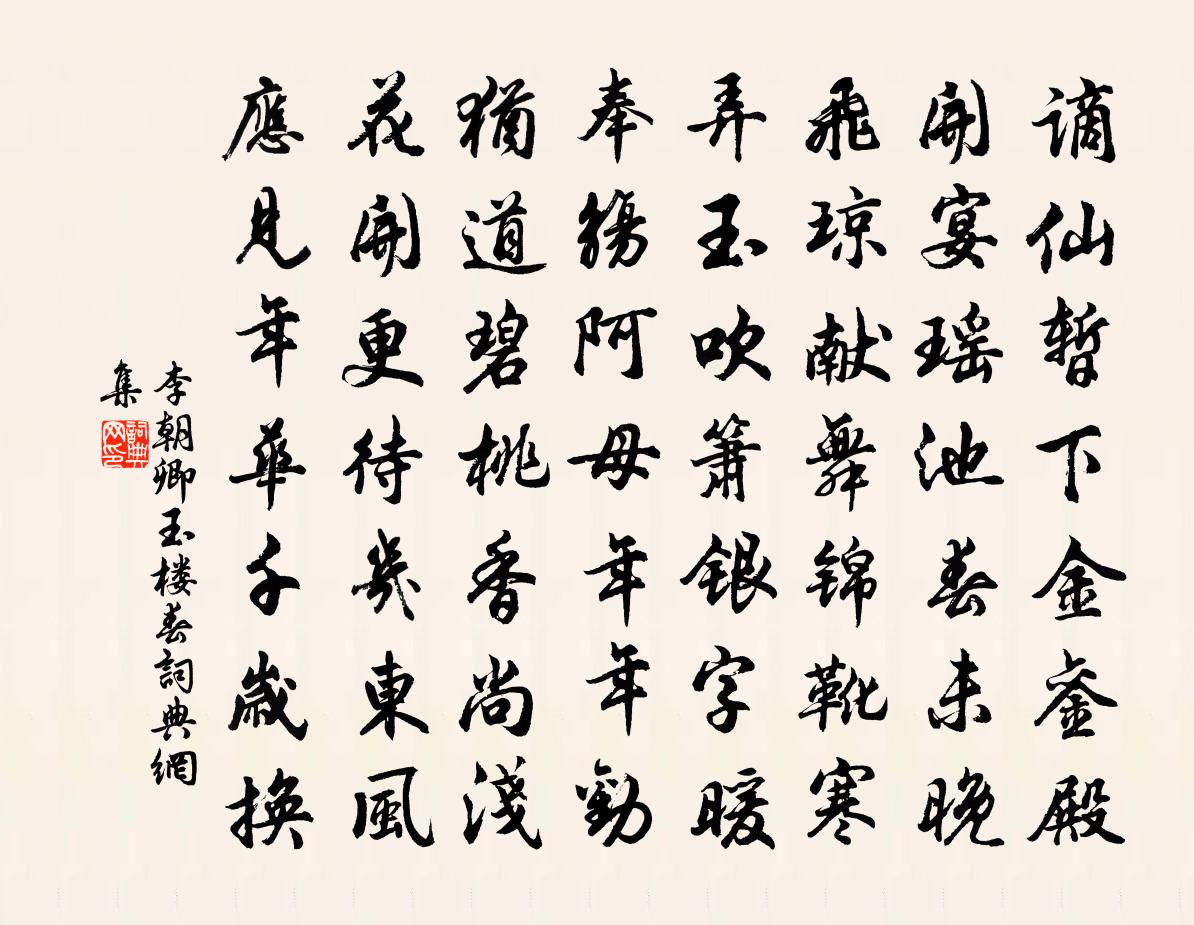 謫仙暫下金銮殿
開宴瑶池春未晚
飛琼献舞锦靴寒
弄玉吹簫銀字暖
奉觴阿母年年勸
猶道碧桃香尚淺
花開更待幾東風
應見年華千歳換
李朝卿玉楼春詞典網
集
詞典
网印